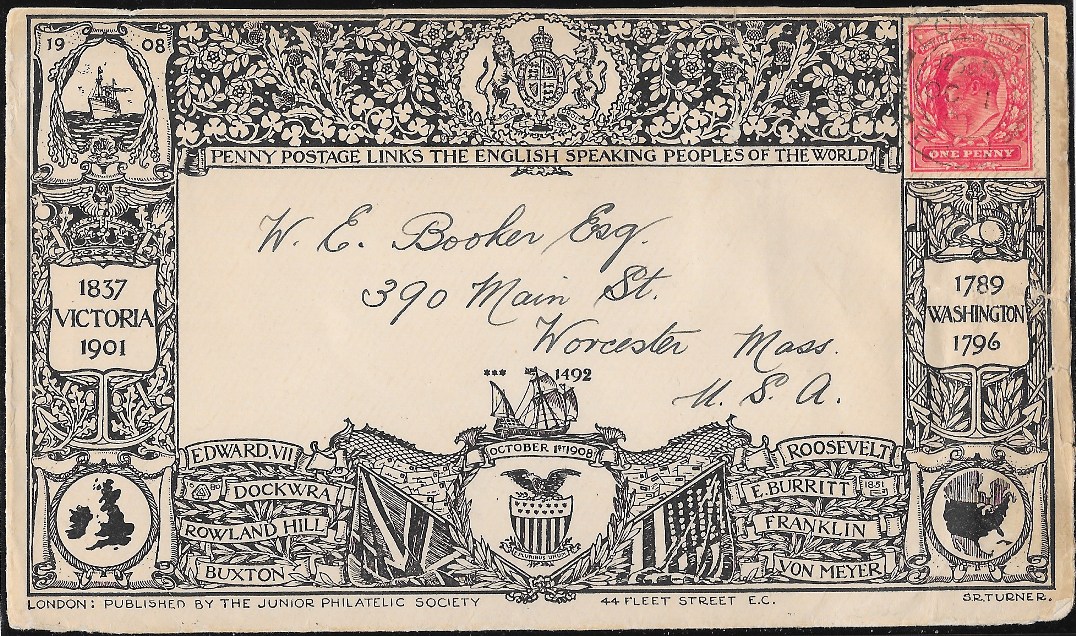 19 08
PENNY POSTAGE LINKS THE ENGLISH SPEAKING PEOPLES OF THE WORLD
ONE PENNY
W. E. Booker Esq.
390 Main St.
Worcester Mass.
U. S. A.
1837
VICTORIA
1901
1789
WASHINGTON
1796
*** 1492
OCTOBER 1ST 1908
EDWARD.VII
DOCKWRA
ROWLAND HILL
BUXTON
ROOSEVELT
E.BURRITT 1851
FRANKLIN
VON MEYER
LONDON: PUBLISHED BY THE JUNIOR PHILATELIC SOCIETY 44 FLEET STREET E.C. S.R.TURNER.